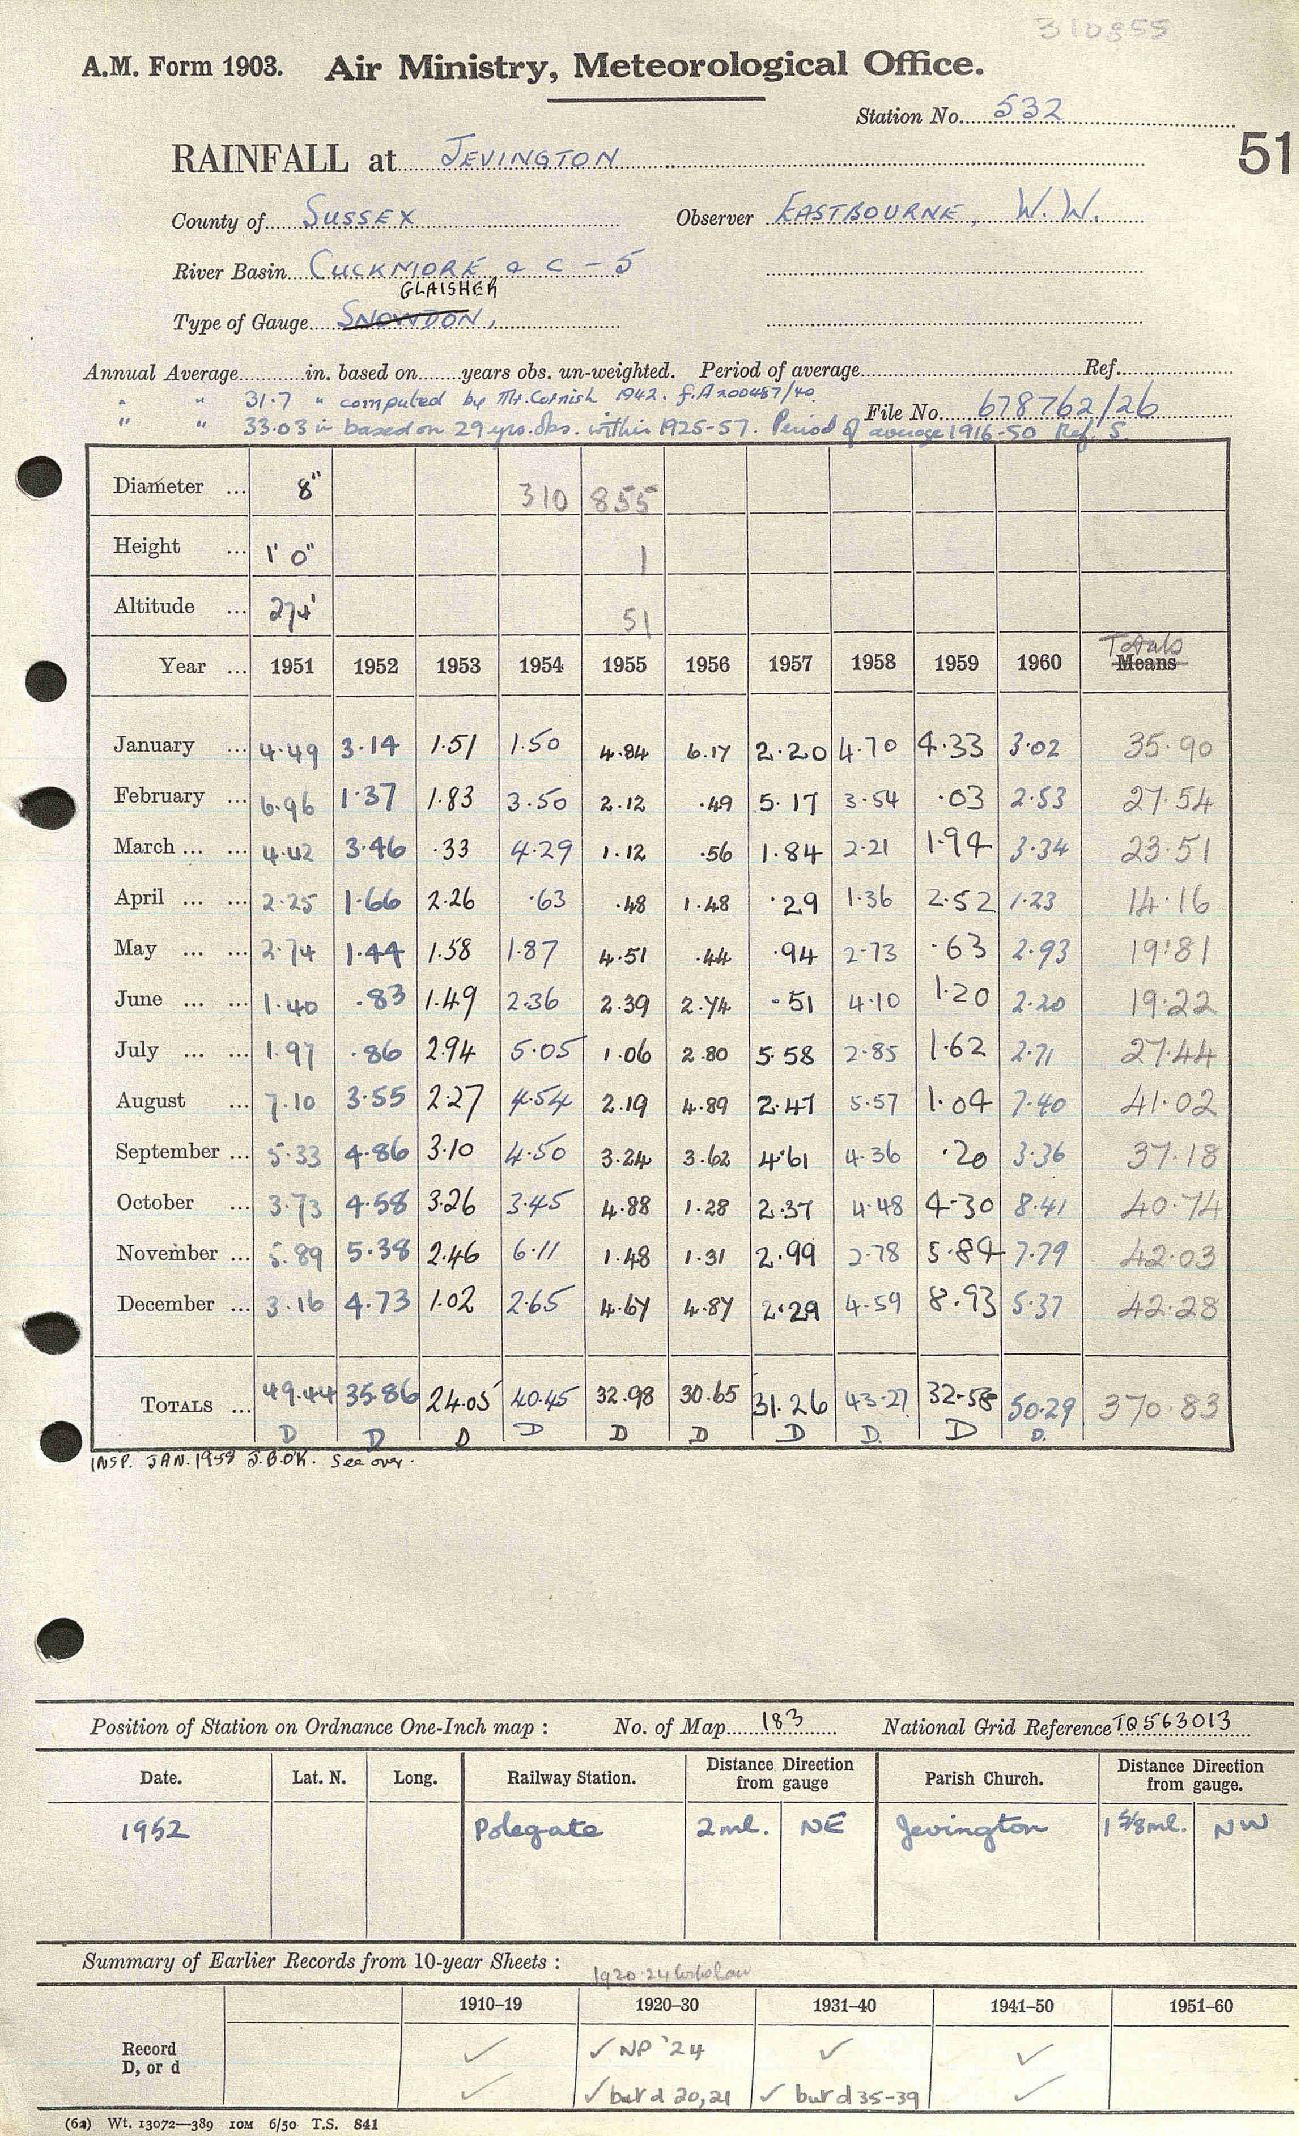 310855
A.M. Form 1903. Air Ministry, Meteorological Office.
Station No. 532
51
RAINFALL at JEVINGTON
County of SUSSEX Observer EASTBOURNE, W.W.
River Basin CUCKMORE & C - 5
GLAISHER
Type of Gauge SNOWDON,
Annual Average in. based on years obs. un-weighted. Period of average Ref.
" " 31.7 " computed by Mr. Cornish 1942. f.A200487/40
File No. 678762/26
" " 33.03 in based on 29 yrs. obs. within 1925-57. Period of average 1916-50 Ref. S.
Diameter ... 8" 310 855
Height ... 1' 0" 1
Altitude ... 274' 51
Totals
Year ... 1951 1952 1953 1954 1955 1956 1957 1958 1959 1960 Means
January ... 4.49 3.14 1.51 1.50 4.84 6.17 2.20 4.70 4.33 3.02 35.90
February ... 6.96 1.37 1.83 3.50 2.12 .49 5.17 3.54 .03 2.53 27.54
March ... ... 4.42 3.46 .33 4.29 1.12 .56 1.84 2.21 1.94 3.34 23.51
April ... ... 2.25 1.66 2.26 .63 .48 1.48 .29 1.36 2.52 1.23 14.16
May ... ... 2.74 1.44 1.58 1.87 4.51 .44 .94 2.73 .63 2.93 19.81
June ... ... 1.40 .83 1.49 2.36 2.39 2.74 .51 4.10 1.20 2.20 19.22
July ... ... 1.97 .86 2.94 5.05 1.06 2.80 5.58 2.85 1.62 2.71 27.44
August ... 7.10 3.55 2.27 4.54 2.19 4.89 2.47 5.57 1.04 7.40 41.02
September ... 5.33 4.86 3.10 4.50 3.24 3.62 4.61 4.36 .20 3.36 37.18
October ... 3.73 4.58 3.26 3.45 4.88 1.28 2.37 4.48 4.30 8.41 40.74
November ... 5.89 5.38 2.46 6.11 1.48 1.31 2.99 2.78 5.84 7.79 42.03
December ... 3.16 4.73 1.02 2.65 4.67 4.87 2.29 4.59 8.93 5.37 42.28
TOTALS ... 49.44 35.86 24.05 40.45 32.98 30.65 31.26 43.27 32.58 50.29 370.83
D D D D D D D D. D D.
INSP. JAN. 1958 J.B.O'K. See over.
Position of Station on Ordnance One-Inch map : No. of Map 183 National Grid Reference TQ563013
Date. Lat. N. Long. Railway Station. Distance Direction from gauge Parish Church. Distance Direction from gauge.
1952 Polegate 2ml. NE Jevington 1 5/8 ml. NW
Summary of Earlier Records from 10-year Sheets :
1920-24
1910–19 1920–30 1931–40 1941–50 1951–60
Record ✓ ✓ NP '24 ✓ ✓
D, or d ✓ ✓ but d 20, 21 ✓ but d 35-39 ✓
(62) Wt. 13072—389 10M 6/50 T.S. 841